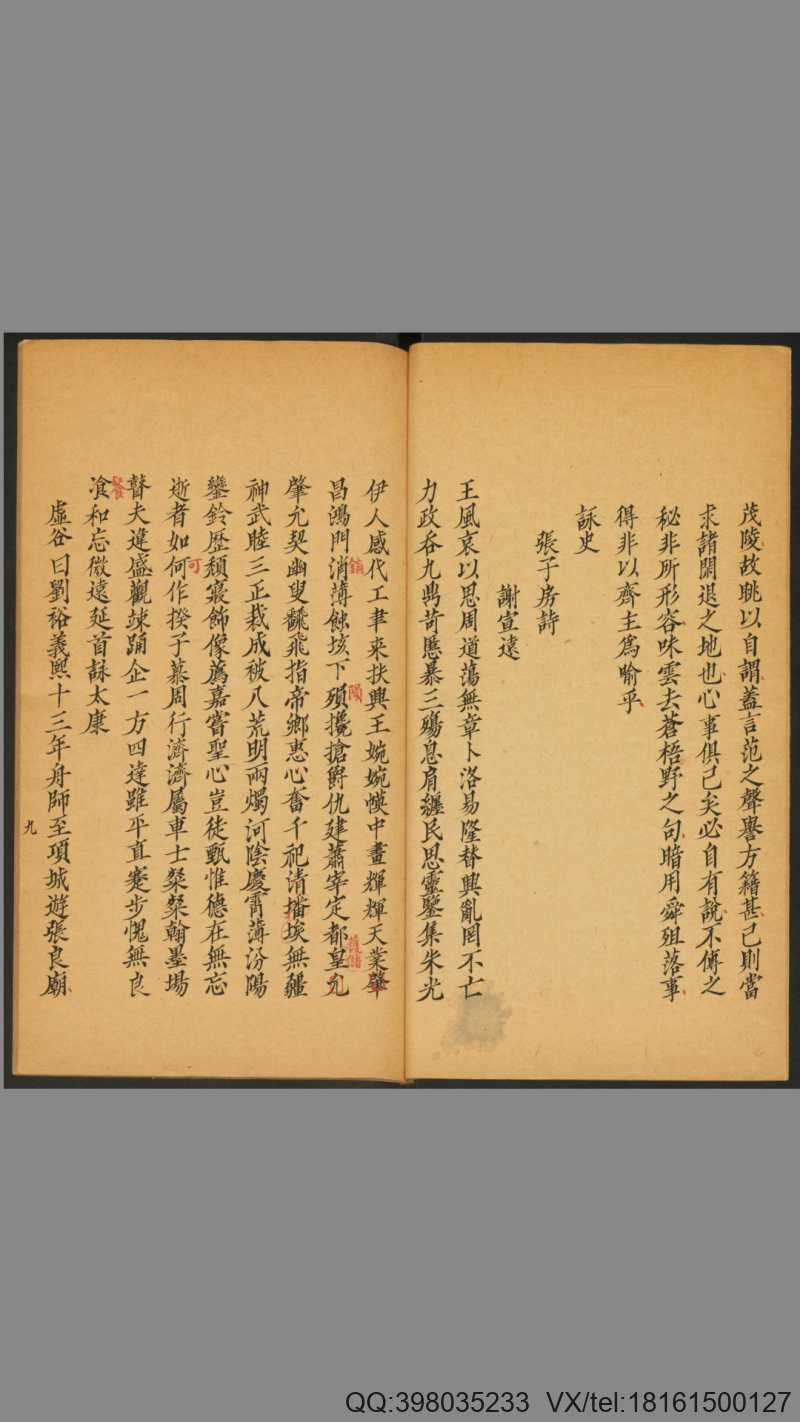 茂陵故眺以自謂蓋言范之聲譽方籍甚己則當
求諸閑退之地也心事俱已矣必自有說不傳之
秘非所形容味雲去蒼梧野之句暗用舜殂落事
得非以齊主為喻乎
詠史
張子房詩
謝宣遠
王風哀以思周道蕩無章卜洛易隆替興亂罔不亡
力政吞九鼎苛慝暴三殤息肩纏民思靈鑒集朱光
伊人感代工聿來扶興王婉婉幙中畫輝輝天業肇
昌鴻門消薄蝕垓下殞攙搶爵仇建蕭宰定都皇允
肇允契幽叟飜飛指帝鄉惠心奮千祀清播埃無疆
神武睦三正裁成被八荒明兩燭河陰慶霄薄汾陽
鑾鈴歷頹寢飾像薦嘉嘗聖心豈徒甄惟德在無忘
逝者如何作揆子慕周行濟濟屬車士粲粲翰墨場
瞽夫違盛觀竦踊企一方四達雖平直蹇步愧無良
飡和忘微遠延首詠太康
虛谷曰劉裕義熙十三年舟師至項城遊張良廟
銷
隕
護儲
可
餐
九
QQ:398035233 VX/tel:18161500127